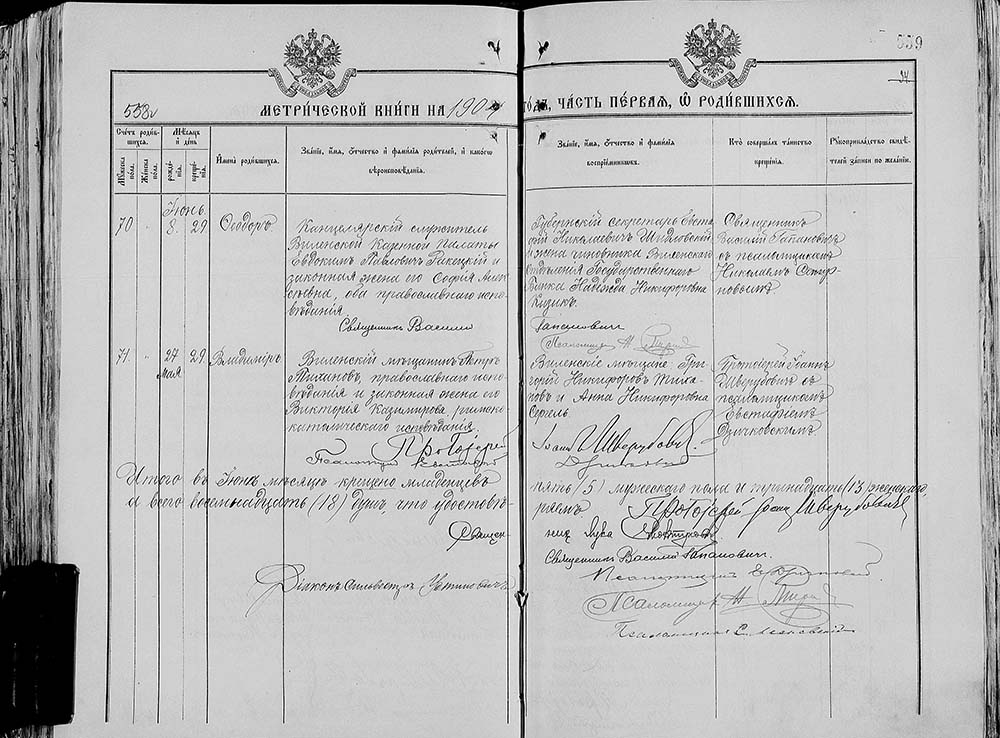 559
558
МЕТРИ́ЧЕСКОЙ КНИ́ГИ НА 1904 ГО́ДЪ, ЧА́СТЬ ПЕ́РВАЯ, Ѡ РОДИ́ВШИХСЯ.
Счетъ роди́вшихся.
Мꙋжеска пола.
Женска пола.
Мѣсяцъ и день
рожденія.
крещенія.
Имена родившихся.
Званіе, имя, отчество и фамилія родителей, и какогѡ вѣроисповѣданія.
Званіе, имя, отчество и фамилія воспріемниковъ.
Кто совершалъ таинство крещенія.
Рꙋкоприкладство свидѣтелей записи по желанію.
Іюнь.
70 " 8. 29. Ѳеодоръ.
Канцелярскій служитель
Виленской Казенной Палаты
Евдокимъ Павловичъ Ракецкій и
законная жена его Софія Алек
сѣевна, оба православнаго испо-
вѣданія.
Священникъ Василій
Губернскій секретарь Евста
фій Николаевичъ Шидловскій
и жена чиновника Виленскаго
Отдѣленія Государственнаго
Банка Надежда Никифоровна
Гапановичъ
Псаломщикъ Н.
Священникъ
Василій Гапановичъ
съ псаломщикомъ
Николаемъ
71. " 27 29. Владиміръ
Мая
Виленскій мѣщанинъ Петръ
Тихановъ, православнаго испо-
вѣданія и законная жена его
Викторія Казимирова, римско-
католическаго исповѣданія.
Протоіерей
Псаломщикъ Евстафій
Виленскіе мѣщане Гри-
горій Никифоровъ Тиха-
новъ и Анна Никифоровна
Іоаннъ Шверубовичъ
Протоіерей Іоаннъ
Шверубовичъ съ
псаломщикомъ
Евстафіемъ
Итого въ Іюнѣ мѣсяцѣ крещено младенцевъ пять (5) мужескаго пола и тринадцать (13) женскаго,
а всего восемнадцать (18) душъ, что удостовѣряемъ Протоіерей Іоаннъ Шверубовичъ
Священникъ Лука
Священникъ Василій Гапановичъ.
Діаконъ Сильвестръ
Псаломщикъ Е.
Псаломщикъ Н.
Псаломщикъ С.